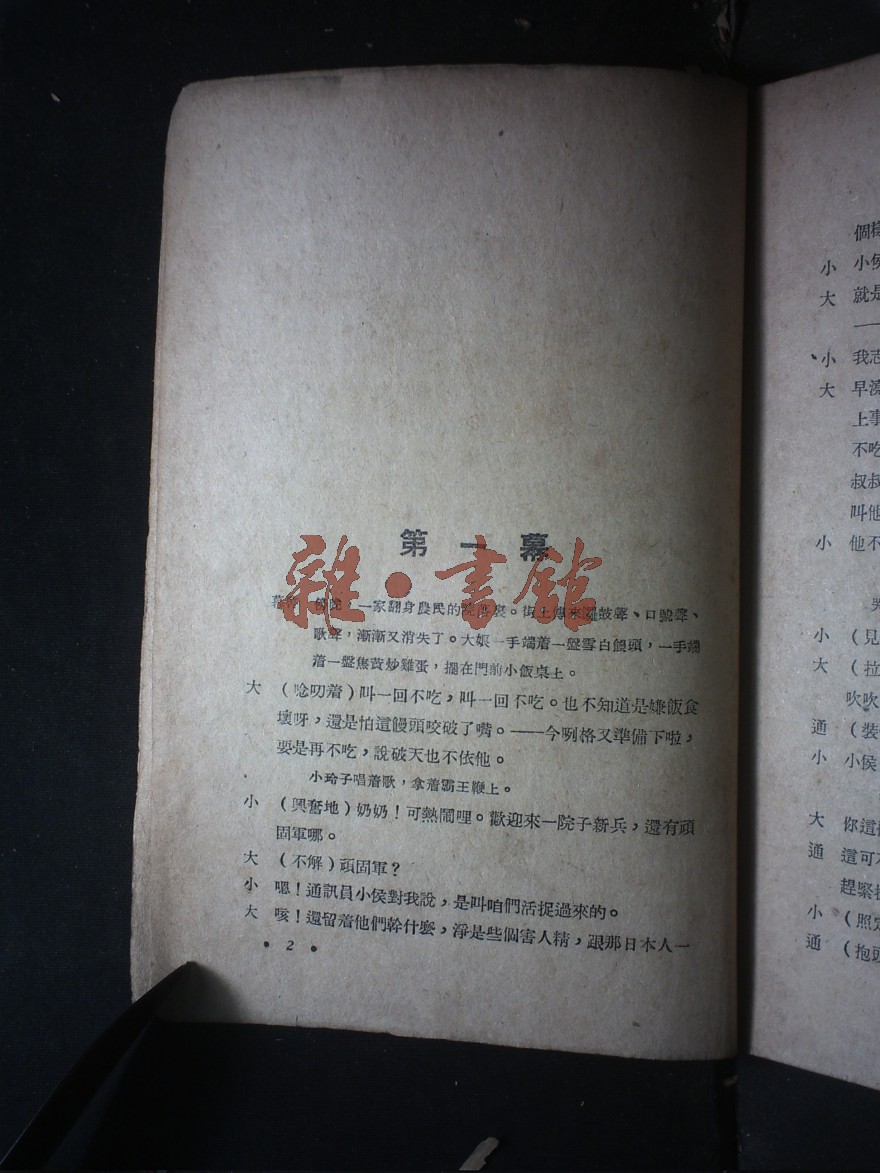 第一幕
雜·書館
一家翻身農民的院落裏。街上傳來鑼鼓聲、口號聲、
歌聲，漸漸又消失了。大娘一手端着一盤雪白饅頭，一手端
着一盤焦黄炒雞蛋，擺在門前小飯桌上。
大 （唸叨着）叫一回不吃，叫一回不吃。也不知道是嫌飯食
壞呀，還是怕這饅頭咬破了嘴。——今咧格又準備下啦，
要是再不吃，說破天也不依他。
小玲子唱着歌，拿着霸王鞭上。
小 （興奮地）奶奶！可熱鬧哩。歡迎來一院子新兵，還有頑
固軍哪。
大 （不解）頑固軍？
小 嗯！通訊員小侯對我說，是叫咱們活捉過來的。
大 咳！還留着他們幹什麼，淨是些個害人精，跟那日本人一
• 2 •
個樣
小 小侯
大 就是
一
小 我志
大 早澆
上事
不吃
叔叔
叫他
小 他不
小 （見
大 （拉
吹吹
通 （裝
小 小侯
大 你這
通 這可不
趕緊
小 （照定
通 （抱頭